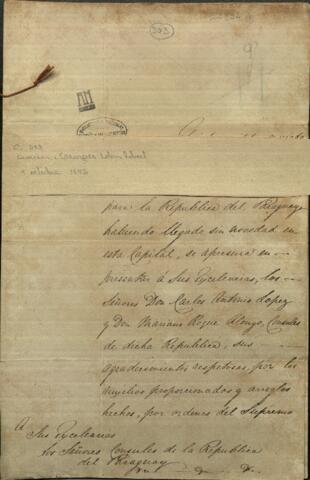 393
para la Republica del Paraguay
habiendo llegado sin novedad en
esta Capital, se apresura en
presentar á Sus Excelencias, los
Señores Don Carlos Antonio Lopez
y Don Mariano Roque Alonzo, Consules
de dicha Republica, sus
agradecimientos respetuosos, por los
auxilios proporcionados y arreglos
hechos, por ordenes del Supremo
A
Sus Excelencias
Los Señores Consules de la Republica
del Paraguay